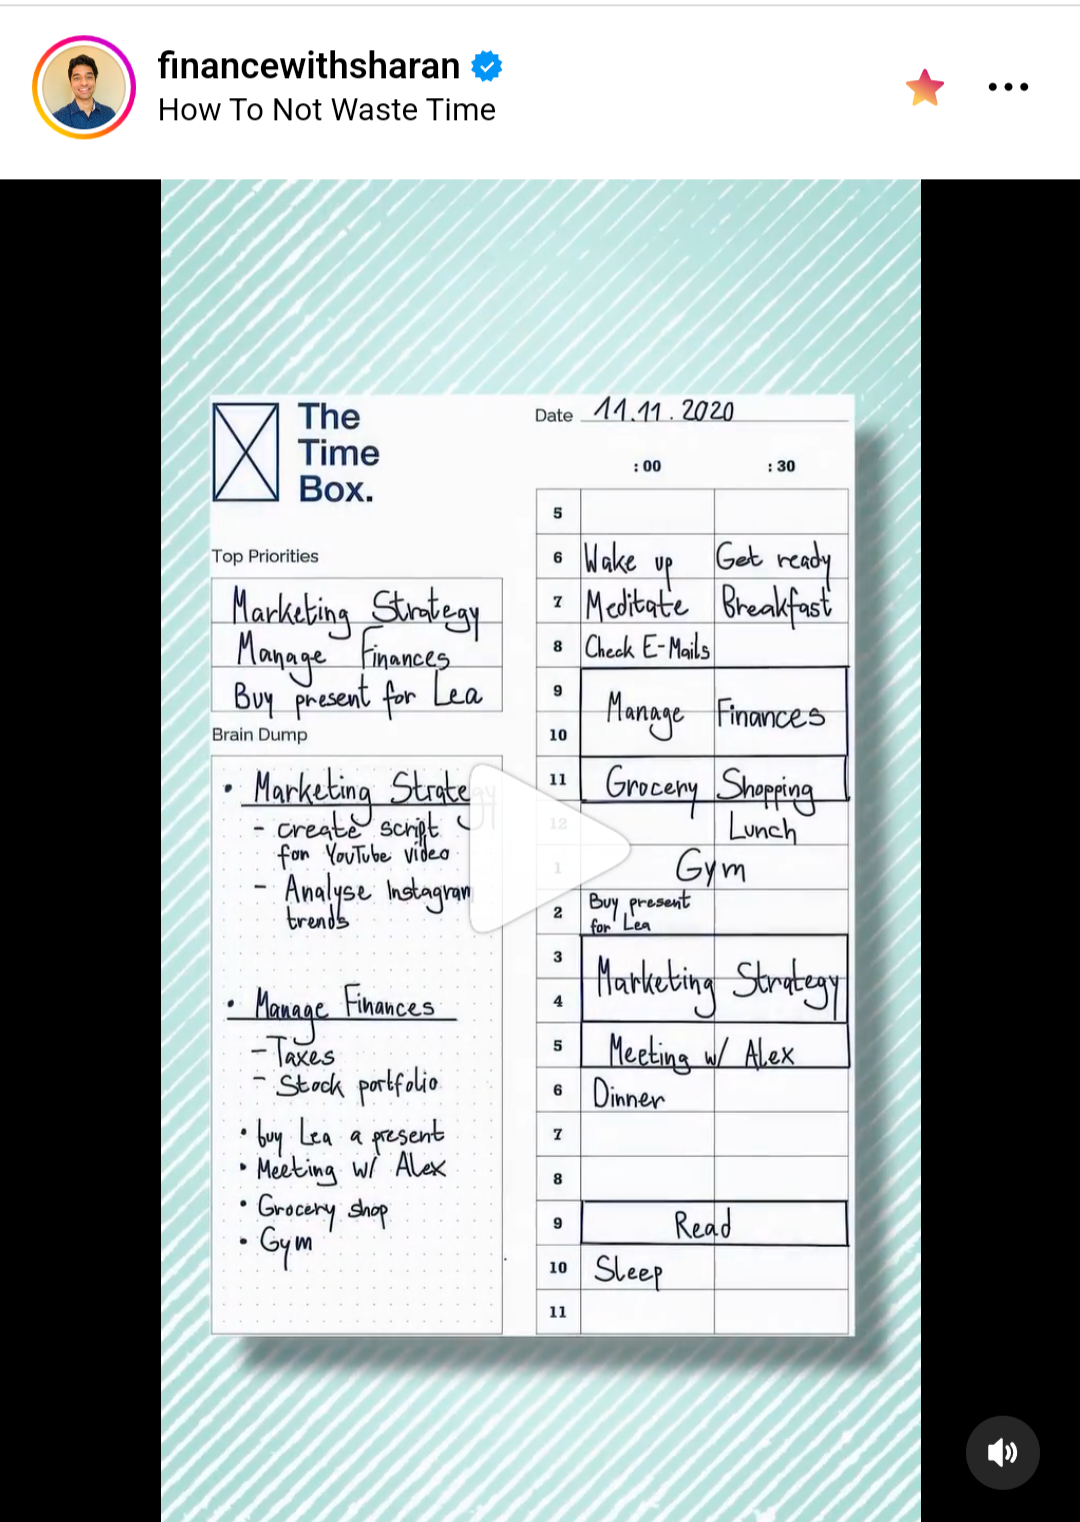 financewithsharan
How To Not Waste Time
The
Time
Box.
Date 11.11.2020
:00 :30
Top Priorities
Marketing Strategy
Manage Finances
Buy present for Lea
Brain Dump
• Marketing Strategy
- create script
for YouTube video
- Analyse Instagram
trends
• Manage Finances
- Taxes
- Stock portfolio
• buy Lea a present
• Meeting w/ Alex
• Grocery shop
• Gym
5
6 Wake up Get ready
7 Meditate Breakfast
8 Check E-Mails
9
Manage Finances
10
11 Grocery Shopping
12 Lunch
1 Gym
2 Buy present
for Lea
3
Marketing Strategy
4
5 Meeting w/ Alex
6 Dinner
7
8
9 Read
10 Sleep
11